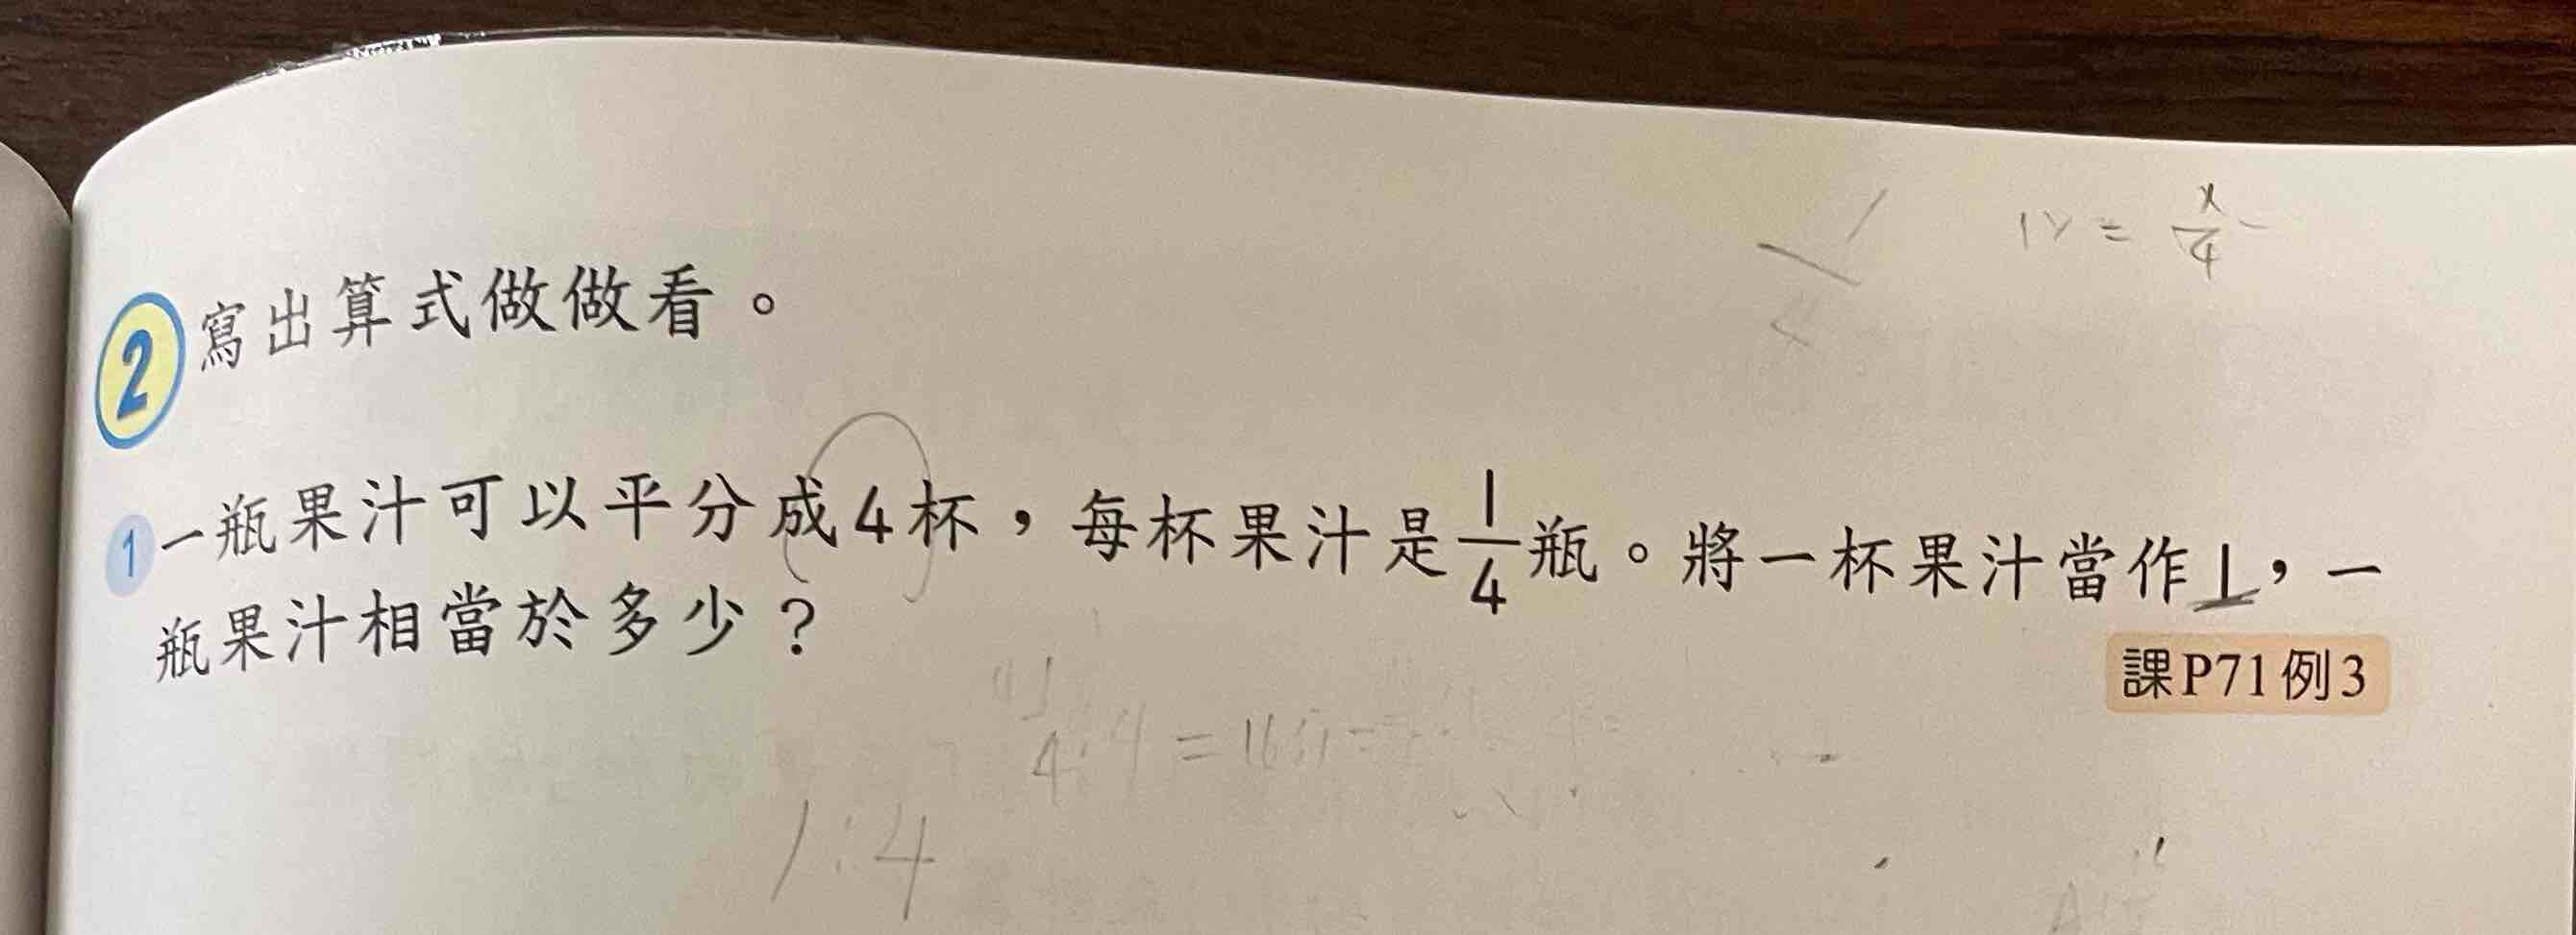 1x = x/4
1
4
2 寫出算式做做看。
1 一瓶果汁可以平分成4杯，每杯果汁是1/4瓶。將一杯果汁當作1，一
瓶果汁相當於多少？
課P71例3
1:4